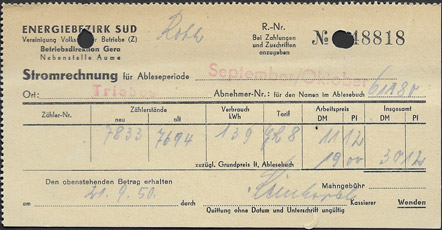 ENERGIEBEZIRK SUD
Vereinigung Volks Betriebe (Z)
Betriebsdirektion Gera
Nebenstelle Auma
R.-Nr.
Bei Zahlungen
und Zuschriften
anzugeben
№ 48818
Stromrechnung für Ableseperiode September/Oktober
Ort: Triebes Abnehmer-Nr.: für den Namen im Ablesebuch
Zähler-Nr. Zählerstände Verbrauch Tarif Arbeitspreis Insgesamt
neu alt kWh DM Pf DM Pf
7833 7694 139 8 11 12
zuzügl. Grundpreis lt. Ablesebuch 19 00 30 12
Den obenstehenden Betrag erhalten Mahngebühr
am 21.9.50. durch Kassierer Wenden
Quittung ohne Datum und Unterschrift ungültig